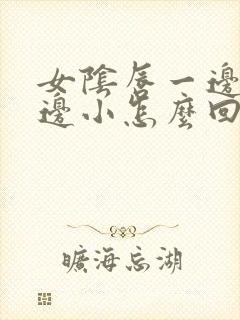 女陰唇一邊
邊小怎麼回
曠海忘湖